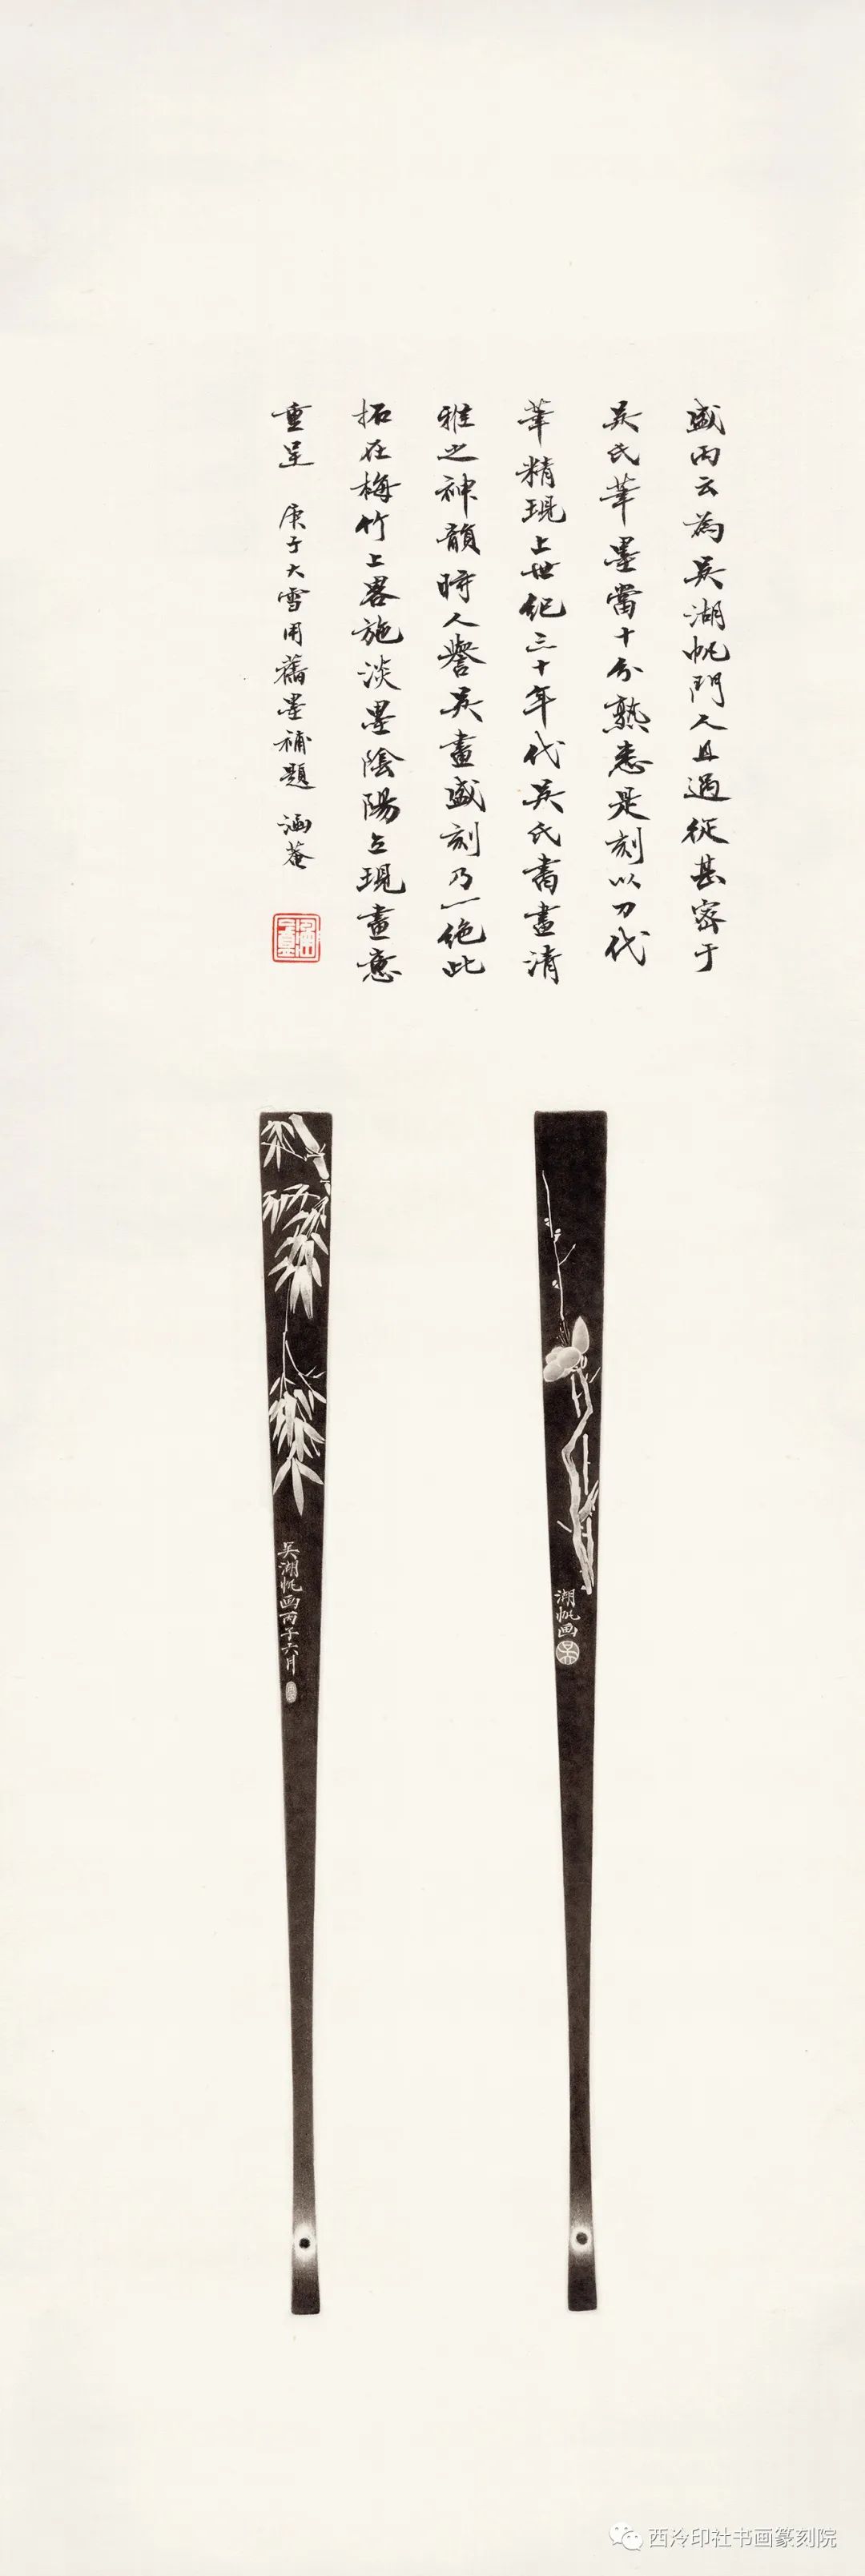 盛丙云為吳湖帆門人且過從甚密于
吳氏筆墨當十分熟悉是刻以刀代
筆精現上世纪三十年代吳氏書畫清
雅之神韻時人譽吳畫盛刻乃一绝此
拓在梅竹上畧施淡墨陰陽立現畫意
重呈 庚子大雪用舊墨補題 涵菴
湖帆画
吳
吳湖帆画丙子六月
西泠印社书画篆刻院